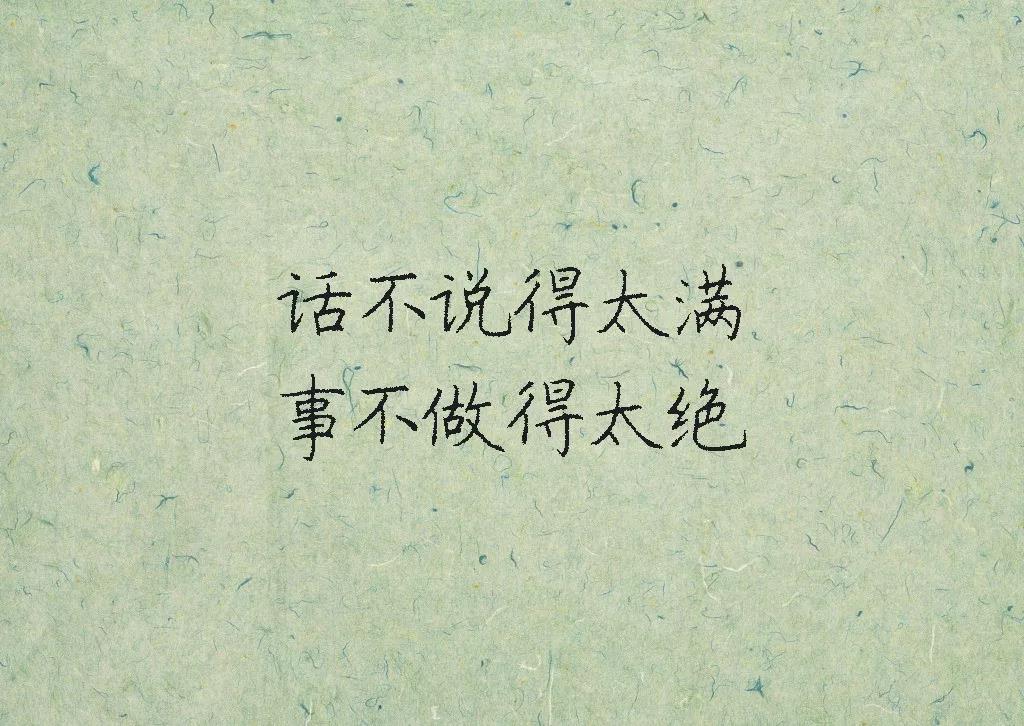 话不说得太满
事不做得太绝